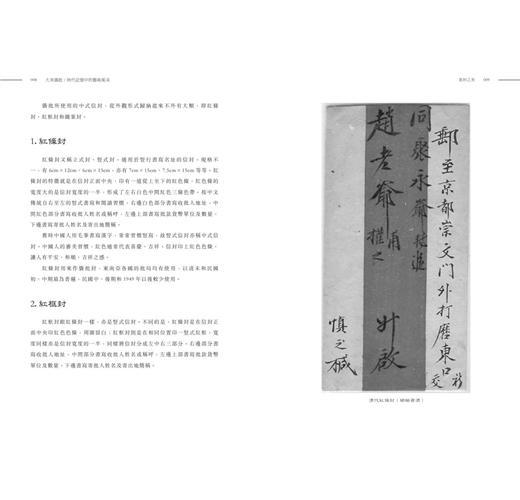 008
大埔僑批：時代記憶中的藝術風采
僑批所使用的中式信封，從外觀形式歸納起來不外有大類，即紅條
封、紅框封和圖案封。
1.紅條封
紅條封又稱正式封、豎式封，適用於豎行書寫名址的信封，規格不
一，有6cm×12cm、6cm×15cm，亦有7cm×15cm、7.5cm×15cm等等。紅
條封的特徵就是在信封正面中央，印有一道從上至下的紅色條。紅色條的
寬度大約是信封寬度的一半，形成了左右白色中間紅色三個色帶。按中文
傳統自右至左的豎式書寫和閱讀習慣，右邊白色部分書寫收批人地址，中
間紅色部分書寫收批人姓名或稱呼，左邊上部書寫批款貨幣單位及數量，
下邊書寫寄批人姓名及寄出地簡稱。
舊時中國人用毛筆書寫漢字，常常習慣豎寫，故豎式信封亦稱中式信
封。中國人的審美習慣，紅色通常代表喜慶、吉祥。信封印上紅色色條，
讓人有平安、和順、吉祥之感。
紅條封用來作僑批封，東南亞各國的批局均有使用，以清末和民國
初、中期最為普遍，民國中、後期和1949年以後較少使用。
2.紅框封
紅框封跟紅條封一樣，亦是豎式信封。不同的是，紅條封是在信封正
面中央印紅色色條，兩頭留白；紅框封則是在相同位置印一豎式紅框，寬
度同樣亦是信封寬度的一半，同樣將信封分成左中右三部分。右邊部分書
寫收批人地址，中間部分書寫收批人姓名或稱呼，左邊上部書寫批款貨幣
單位及數量，下邊書寫寄批人姓名及寄出地簡稱。
009
郵至京都崇文門外打磨東口
交
同聚永
趙老爺
升啟
慎之緘
清代紅條封